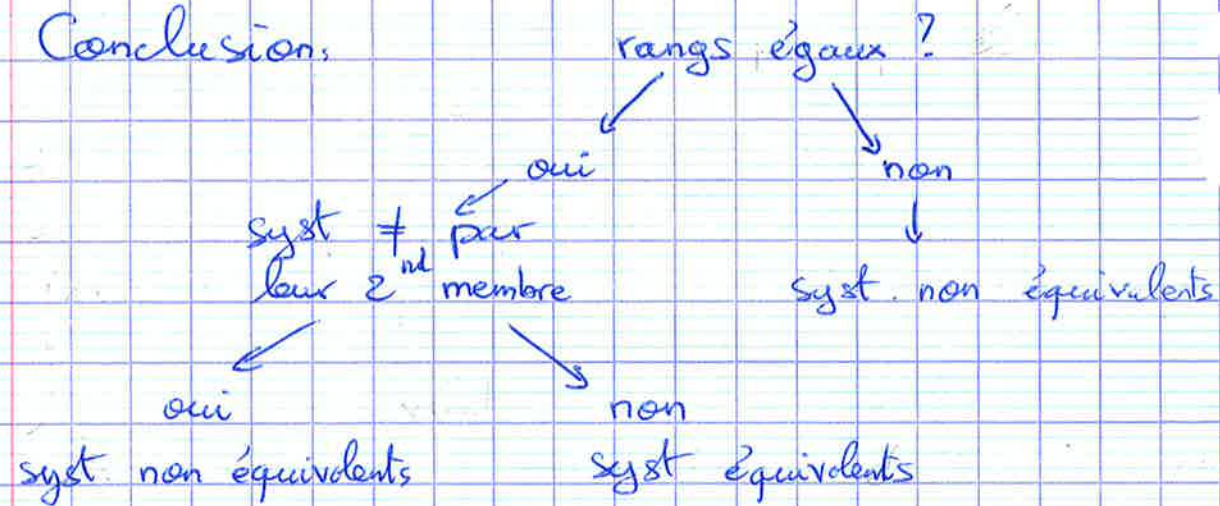 Conclusion:
rangs égaux ?
oui
non
syst ≠ par
leur 2nd membre
syst. non équivalents
oui
non
syst non équivalents
syst équivalents